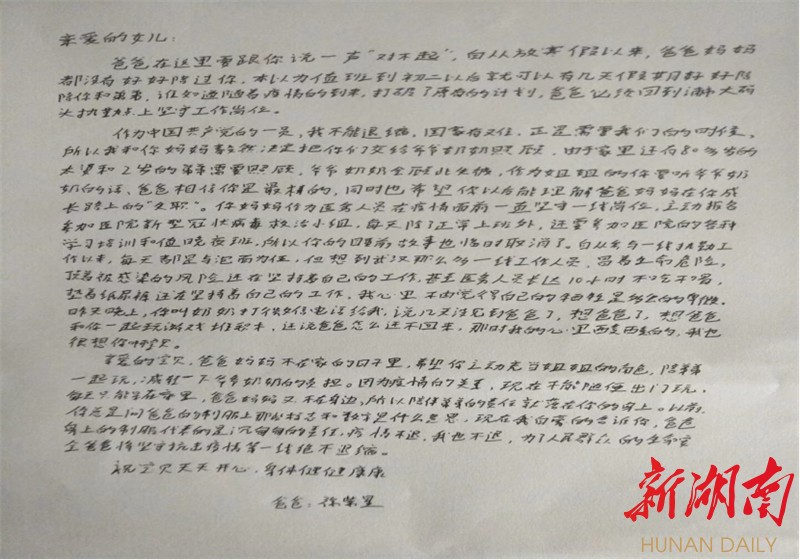 亲爱的女儿：
爸爸在这里要跟你说一声“对不起”，自从放寒假以来，爸爸妈妈
都没有好好陪过你，本以为值班到初二以后就可以有几天假期好好陪
陪你和弟弟，谁知道随着疫情的到来，打破了原有的计划，爸爸必须回到浦大码
头执勤点上坚守工作岗位。
作为中国共产党的一员，我不能退缩，国家有难，正是需要我们的时候，
所以我和你妈妈毅然决定把你们交给爷爷奶奶照顾，由于家里还有80多岁的
太婆和2岁的弟弟需要照顾，爷爷奶奶会顾此失彼，作为姐姐的你要听爷爷奶
奶的话、爸爸相信你是最棒的，同时也希望你以后能理解爸爸妈妈在你成
长路上的“失职”。你妈妈作为医务人员在疫情面前一直坚守一线岗位，主动报名
参加医院新型冠状病毒救治小组，每天除了正常上班外，还要参加医院的各种
学习培训和值晚夜班，所以你的睡前故事也临时取消了。自从参与一线执勤工
作以来，每天都是与泡面为伍，但想到武汉那么多一线工作人员，冒着生命危险，
顶着被感染的风险还在坚持着自己的工作，甚至医务人员长达10小时不吃不喝，
垫着纸尿裤还在坚持着自己的工作，我心里不由觉得自己的牺牲是多么的渺小。
昨天晚上，你叫奶奶打微信电话给我，说几天没见到爸爸了，想爸爸了，想爸爸
和你一起玩游戏堆积木，还说爸爸怎么还不回来，那时我的心里酸酸的，我也
很想你哟。
亲爱的宝贝，爸爸妈妈不在家的日子里，希望你主动充当姐姐的角色，陪弟弟
一起玩，减轻一下爷爷奶奶的负担。因为疫情的关系，现在不能随便出门玩，
每天只能待在家里，爸爸妈妈又不在身边，所以陪伴弟弟的责任就落在你的身上。以前，
你总是问爸爸的制服上那些标志和数字是什么意思，现在我自豪的告诉你，爸爸
身上的制服代表的是沉甸甸的责任，疫情不退，我也不退，为了人民群众的生命安
全爸爸将坚守抗击疫情第一线绝不退缩。
祝宝贝天天开心，身体健健康康
爸爸：徐
新湖南
HUNAN DAILY